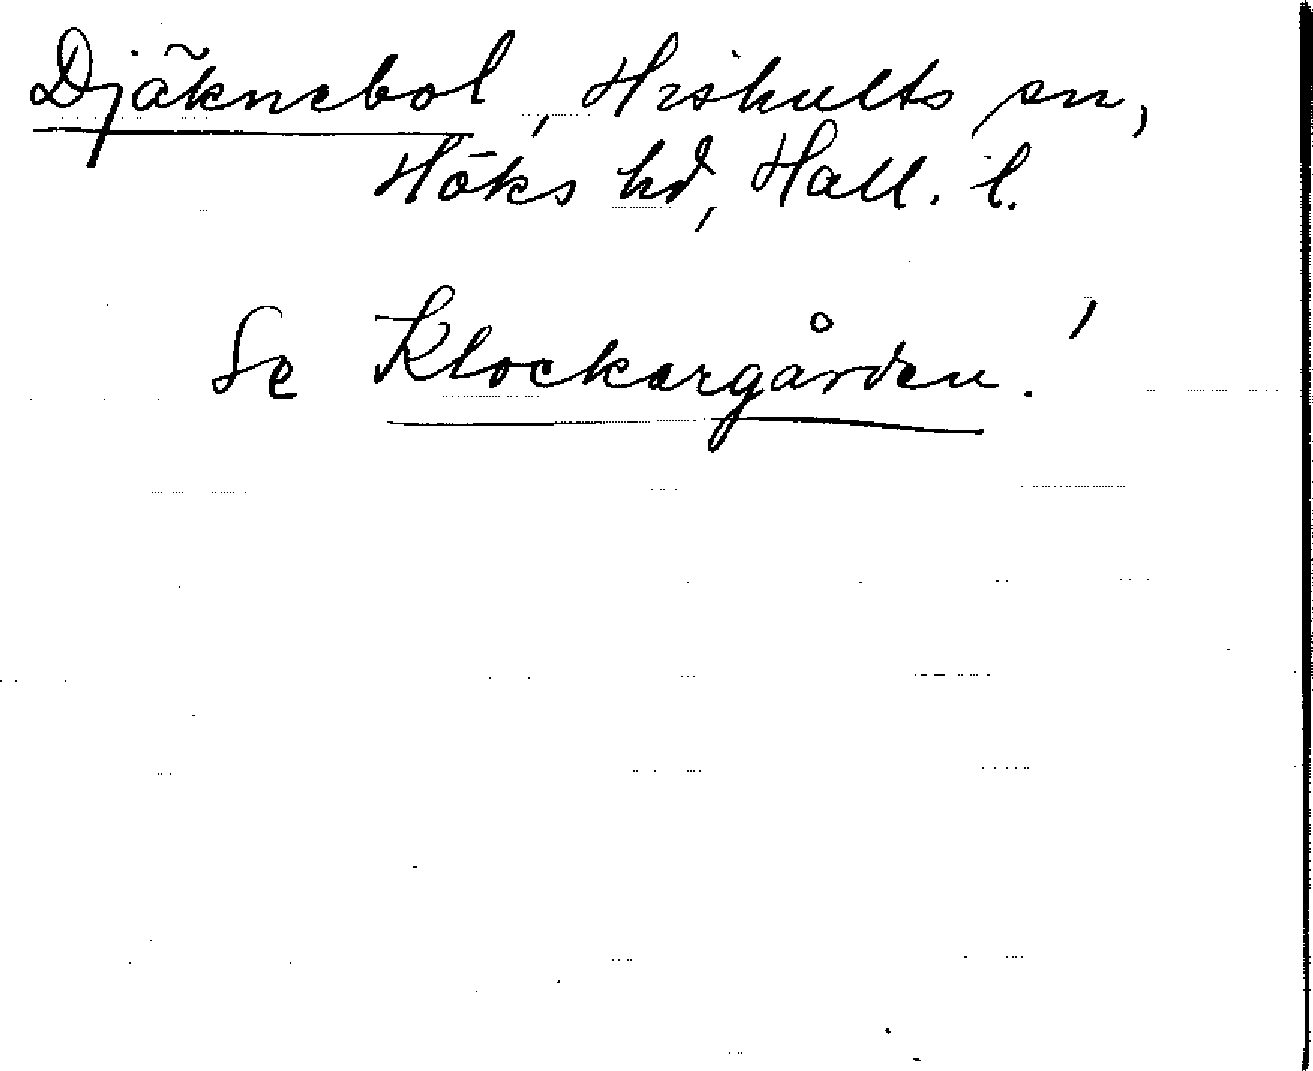 Djäknebol, Hishults sn,
Höks hd, Hall. l.
Se Klockargården!